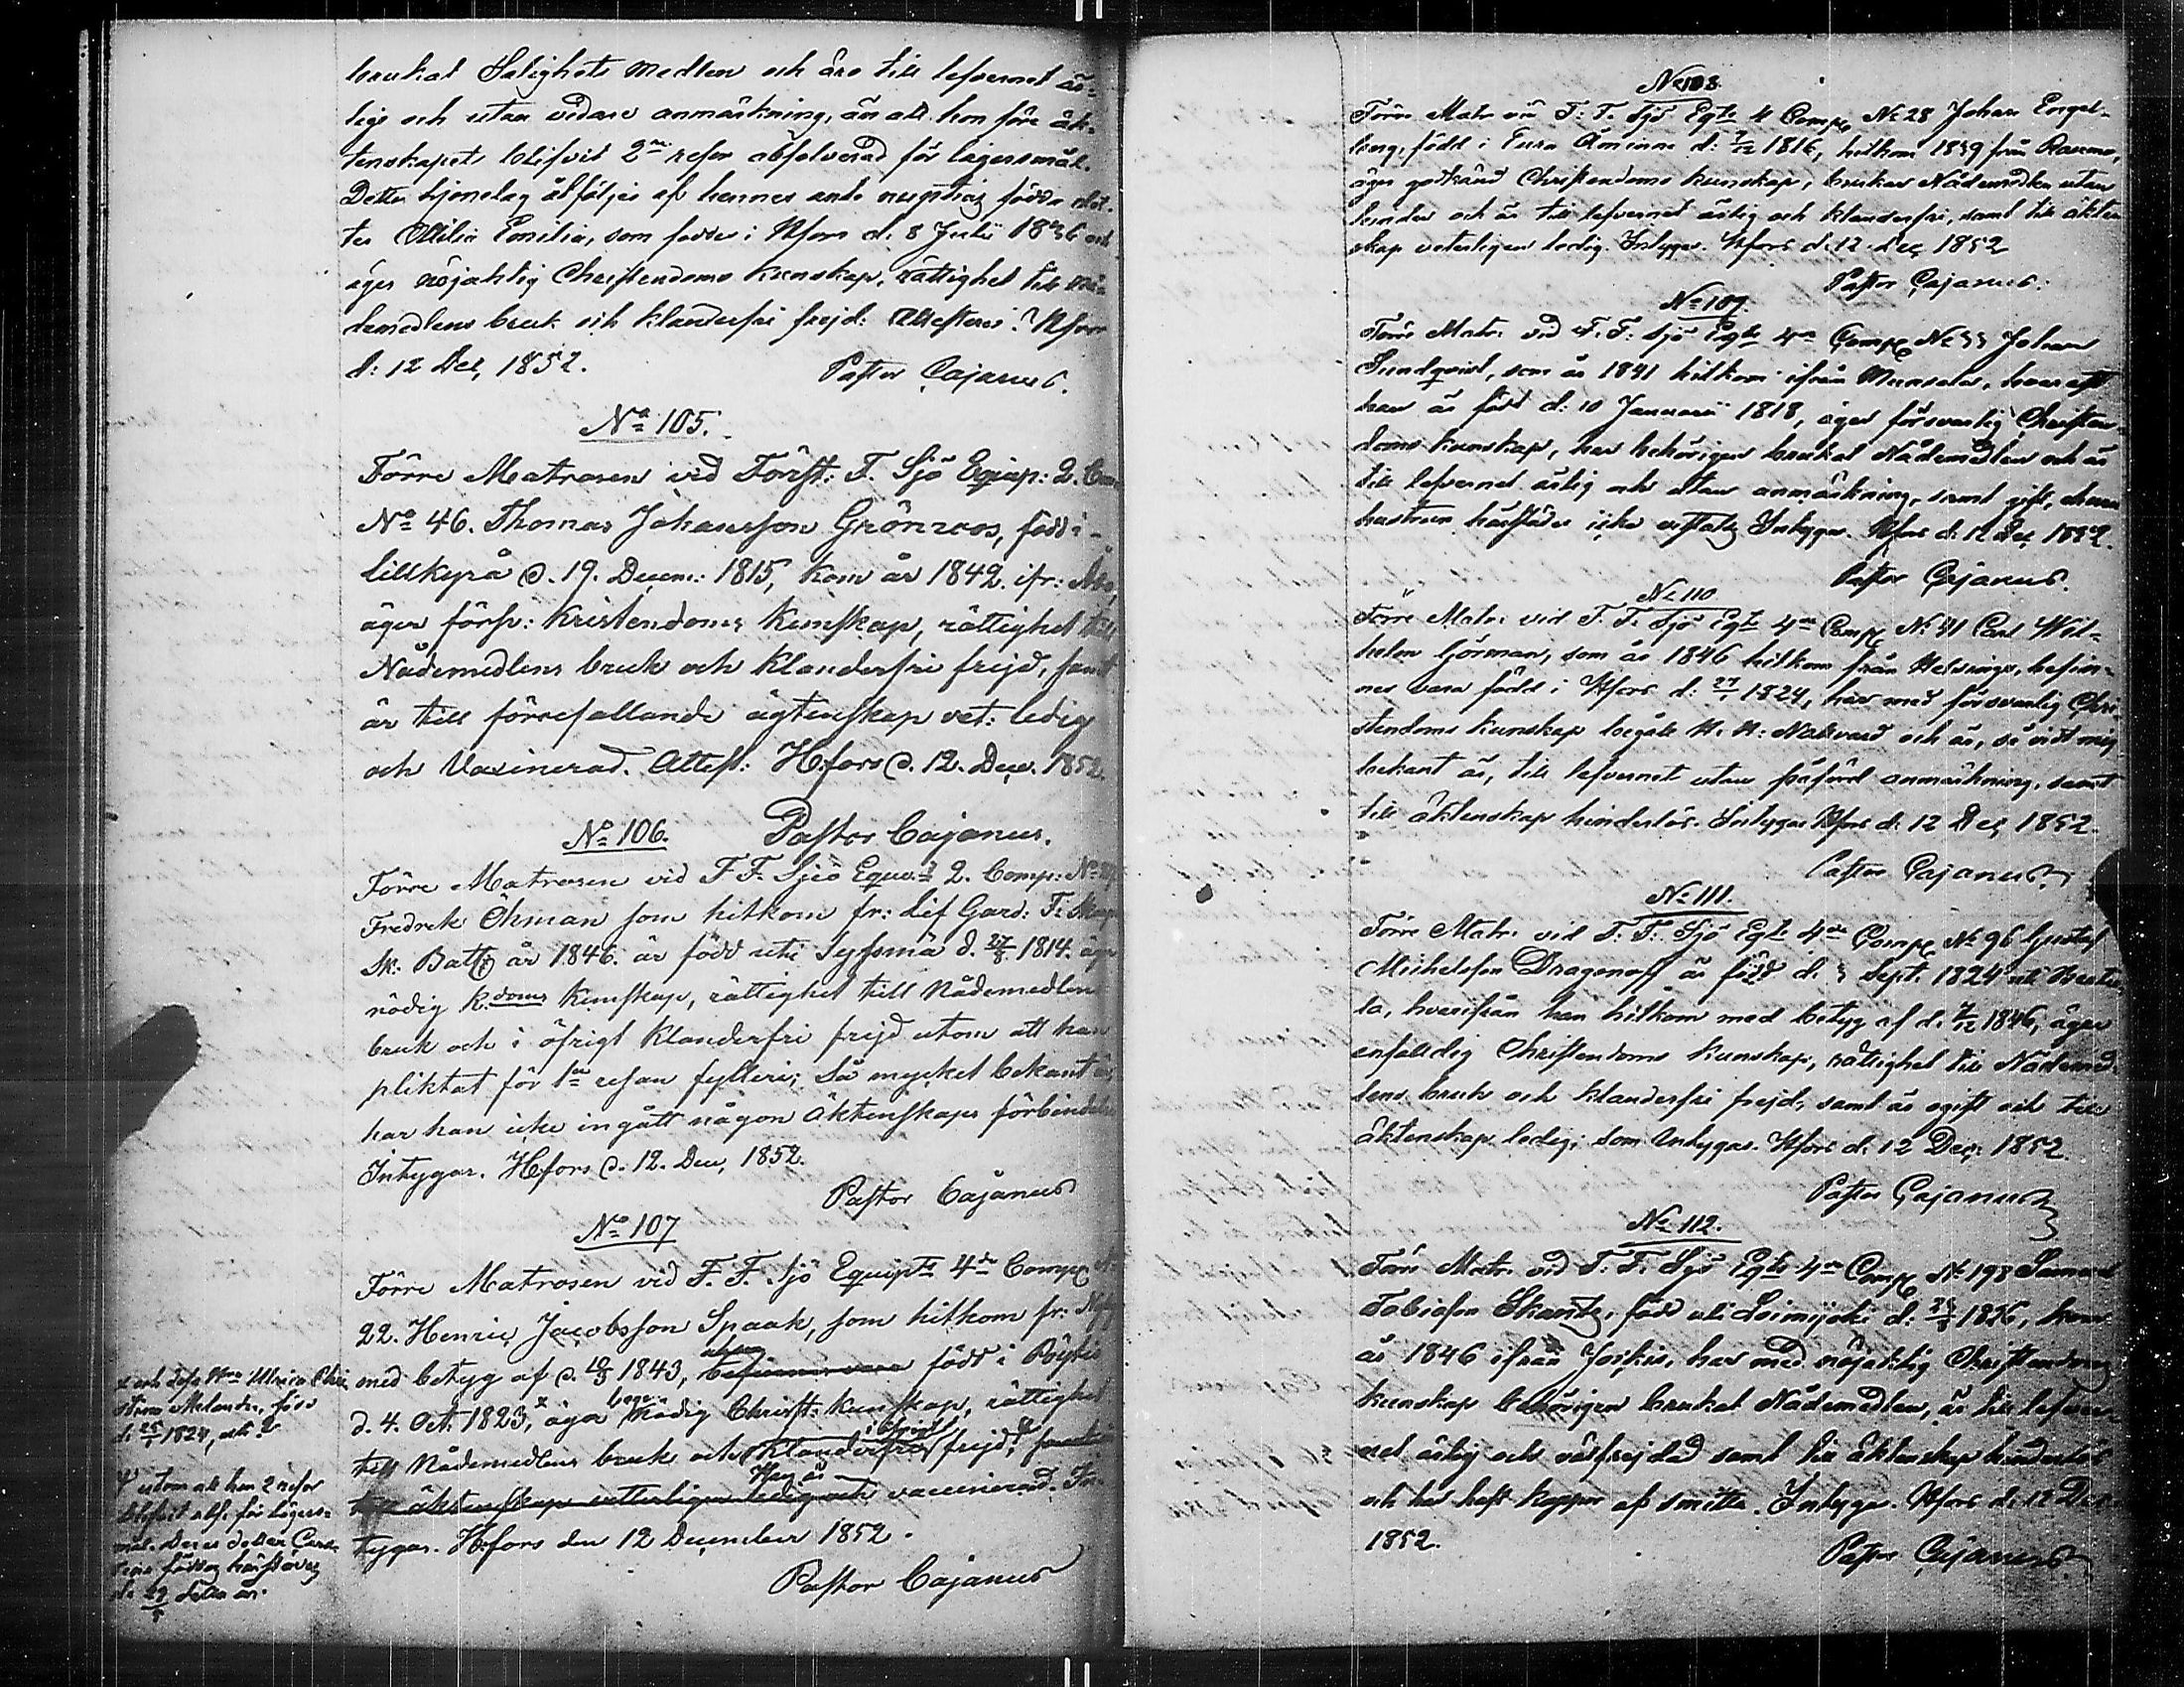 brukat Salighets medlen och äro till lefvernet är-
lige och utan vidare anmärkning, än att hon före äk-
tenskapet blifvit 2ne resor absolverad för lägersmål.
Detta hjonelag åtföljes af hennes ante nuptias födda dot-
ter Otilia Emilia, som föddes i Hfors d. 8 Julii 1836 och
äger nöjaktig Christendoms kunskap, rättighet till Nå-
demedlens bruk och klanderfri frejd: Attesteras: Hfors
d: 12 Dec, 1852. Pastor Cajanus.
No 105.
Förre Matrosen vid Förste F. Sjö Equip: 2. Com
No 46. Thomas Johansson Grönroos, född i
Lillkyro d. 19. Decem: 1815, kom år 1842 ifr: Åbo,
äger försv: Kristendoms Kunskap, rättighet till
Nådemedlens bruk och klanderfri frejd, samt
är till förrefallande ägtenskap vet: ledig
och Vaxinerad. Attest: H:fors d. 12. Dec. 1852
No 106. Pastor Cajanus.
Förre Matrosen vid F. F. Sjö Equip. 2. Comp: No
Fredrek Öhman som hitkom fr: Lif Gard: F. Skarp
Sk: Batt: år 1846. är född uti Sysmä d. 27/8 1814. äger
nödig k.doms kunskap, rättighet till Nådemedlens
bruk och i öfrigt klanderfri frejd utom att han
pliktat för 1a resan fylleri; Så mycket bekant är,
har han icke ingått någon Äktenskaps förbindelse
Intygar. H:fors d. 12. Dec, 1852.
Pastor Cajanus
No 107
Förre Matrosen vid F. F. Sjö Equipe 4de Comp No
22. Henric Jacobsson Spaak, som hitkom fr:
med betyg af d. 10/3 1843, befinnes vara född i Pöytis
d. 4. Oct. 1823, x äger nödig Christ: kunskap, rättighet
till Nådemedlens bruk och klanderfri i öfrigt frejd, samt
till äktenskap vetterligen ledig och Han är vaccinerad. In-
tygas. H:fors den 12 December 1852.
Pastor Cajanus
x och dess Hru Ulrica Chri
stina Melander, född
d. 25/1 1824,
utom att hon 2 resor
blifvit abs. för lägers-
mål. Deras dotter
föddes härstädes
d. 29/5 detta år.
No 108.
Förre Matr vid F: F. Sjö Eqts 4 Comp No 28 Johan Engel-
berg, född i Eura Åminne d: 7/12 1816, hitkom 1839 från Raumo,
äger godkänd Christendoms kunskap, brukar Nådemedlen utan
hinder och är till lefvernet ärlig och klanderfri, samt till äkten
skap veterligen ledig. Intygas. Hfors d. 12 dec 1852
Pastor Cajanus.
No 109.
Förre Matr. vid F. F. Sjö Eqts 4de Comp No 33 Johan
Sundqvist, som år 1841 hitkom ifrån Munsala, hvarest
han är född d: 10 Januarii 1818, äger försvarlig Christen-
doms kunskap, har behörigen brukat Nådemedlen och är
till lefvernet ärlig och utan anmärkning, samt gift, ehuru
hustrun härstädes icke vistats Intygas. Hfors d. 12 Dec 1852.
Pastor Cajanus.
No 110
Förre Matr. vid F. F. Sjö Eqts 4de Comp No 41 Carl Wil-
helm Görman, som år 1846 hitkom från Helsinge, befin-
nes vara född i Hfors d: 27/1 1824, har med försvarlig Chri-
stendoms kunskap begått H. H: Nattvard och är, så vidt mig
bekant är, till lefvernet utan påförd anmärkning, samt
till äktenskap hinderlös. Intygas Hfors d. 12 Dec 1852.
Pastor Cajanus.
No 111.
Förre Matr. vid F: F. Sjö Eqts 4de Comp No 96 Gustaf
Michelsson Dragonoff är född d. 3 Sept. 1824 uti
la, hvarifrån han hitkom med betyg af d. 7/12 1846, äger
enfalldig Christendoms kunskap, rättighet till Nådemed-
lens bruk och klanderfri frejd, samt är ogift och till
äktenskap ledig; som Intygas. Hfors d. 12 Dec: 1852.
Pastor Cajanus
No 112.
Förre Matr. vid F. F. Sjö Eqts 4de Comp No 198 Samuel
Tobiasson Skantz, född uti Loimijoki d: 26/8 1826, kom
år 1846 ifrån Jockis, har med nöjaktig Christendoms
kunskap behörigen brukat Nådemedlen, är till lefver-
net ärlig och välfrejdad samt till äktenskap hinderlös
och har haft koppor af smitta. Intygas. Hfors d. 12 Dec
1852. Pastor Cajanus